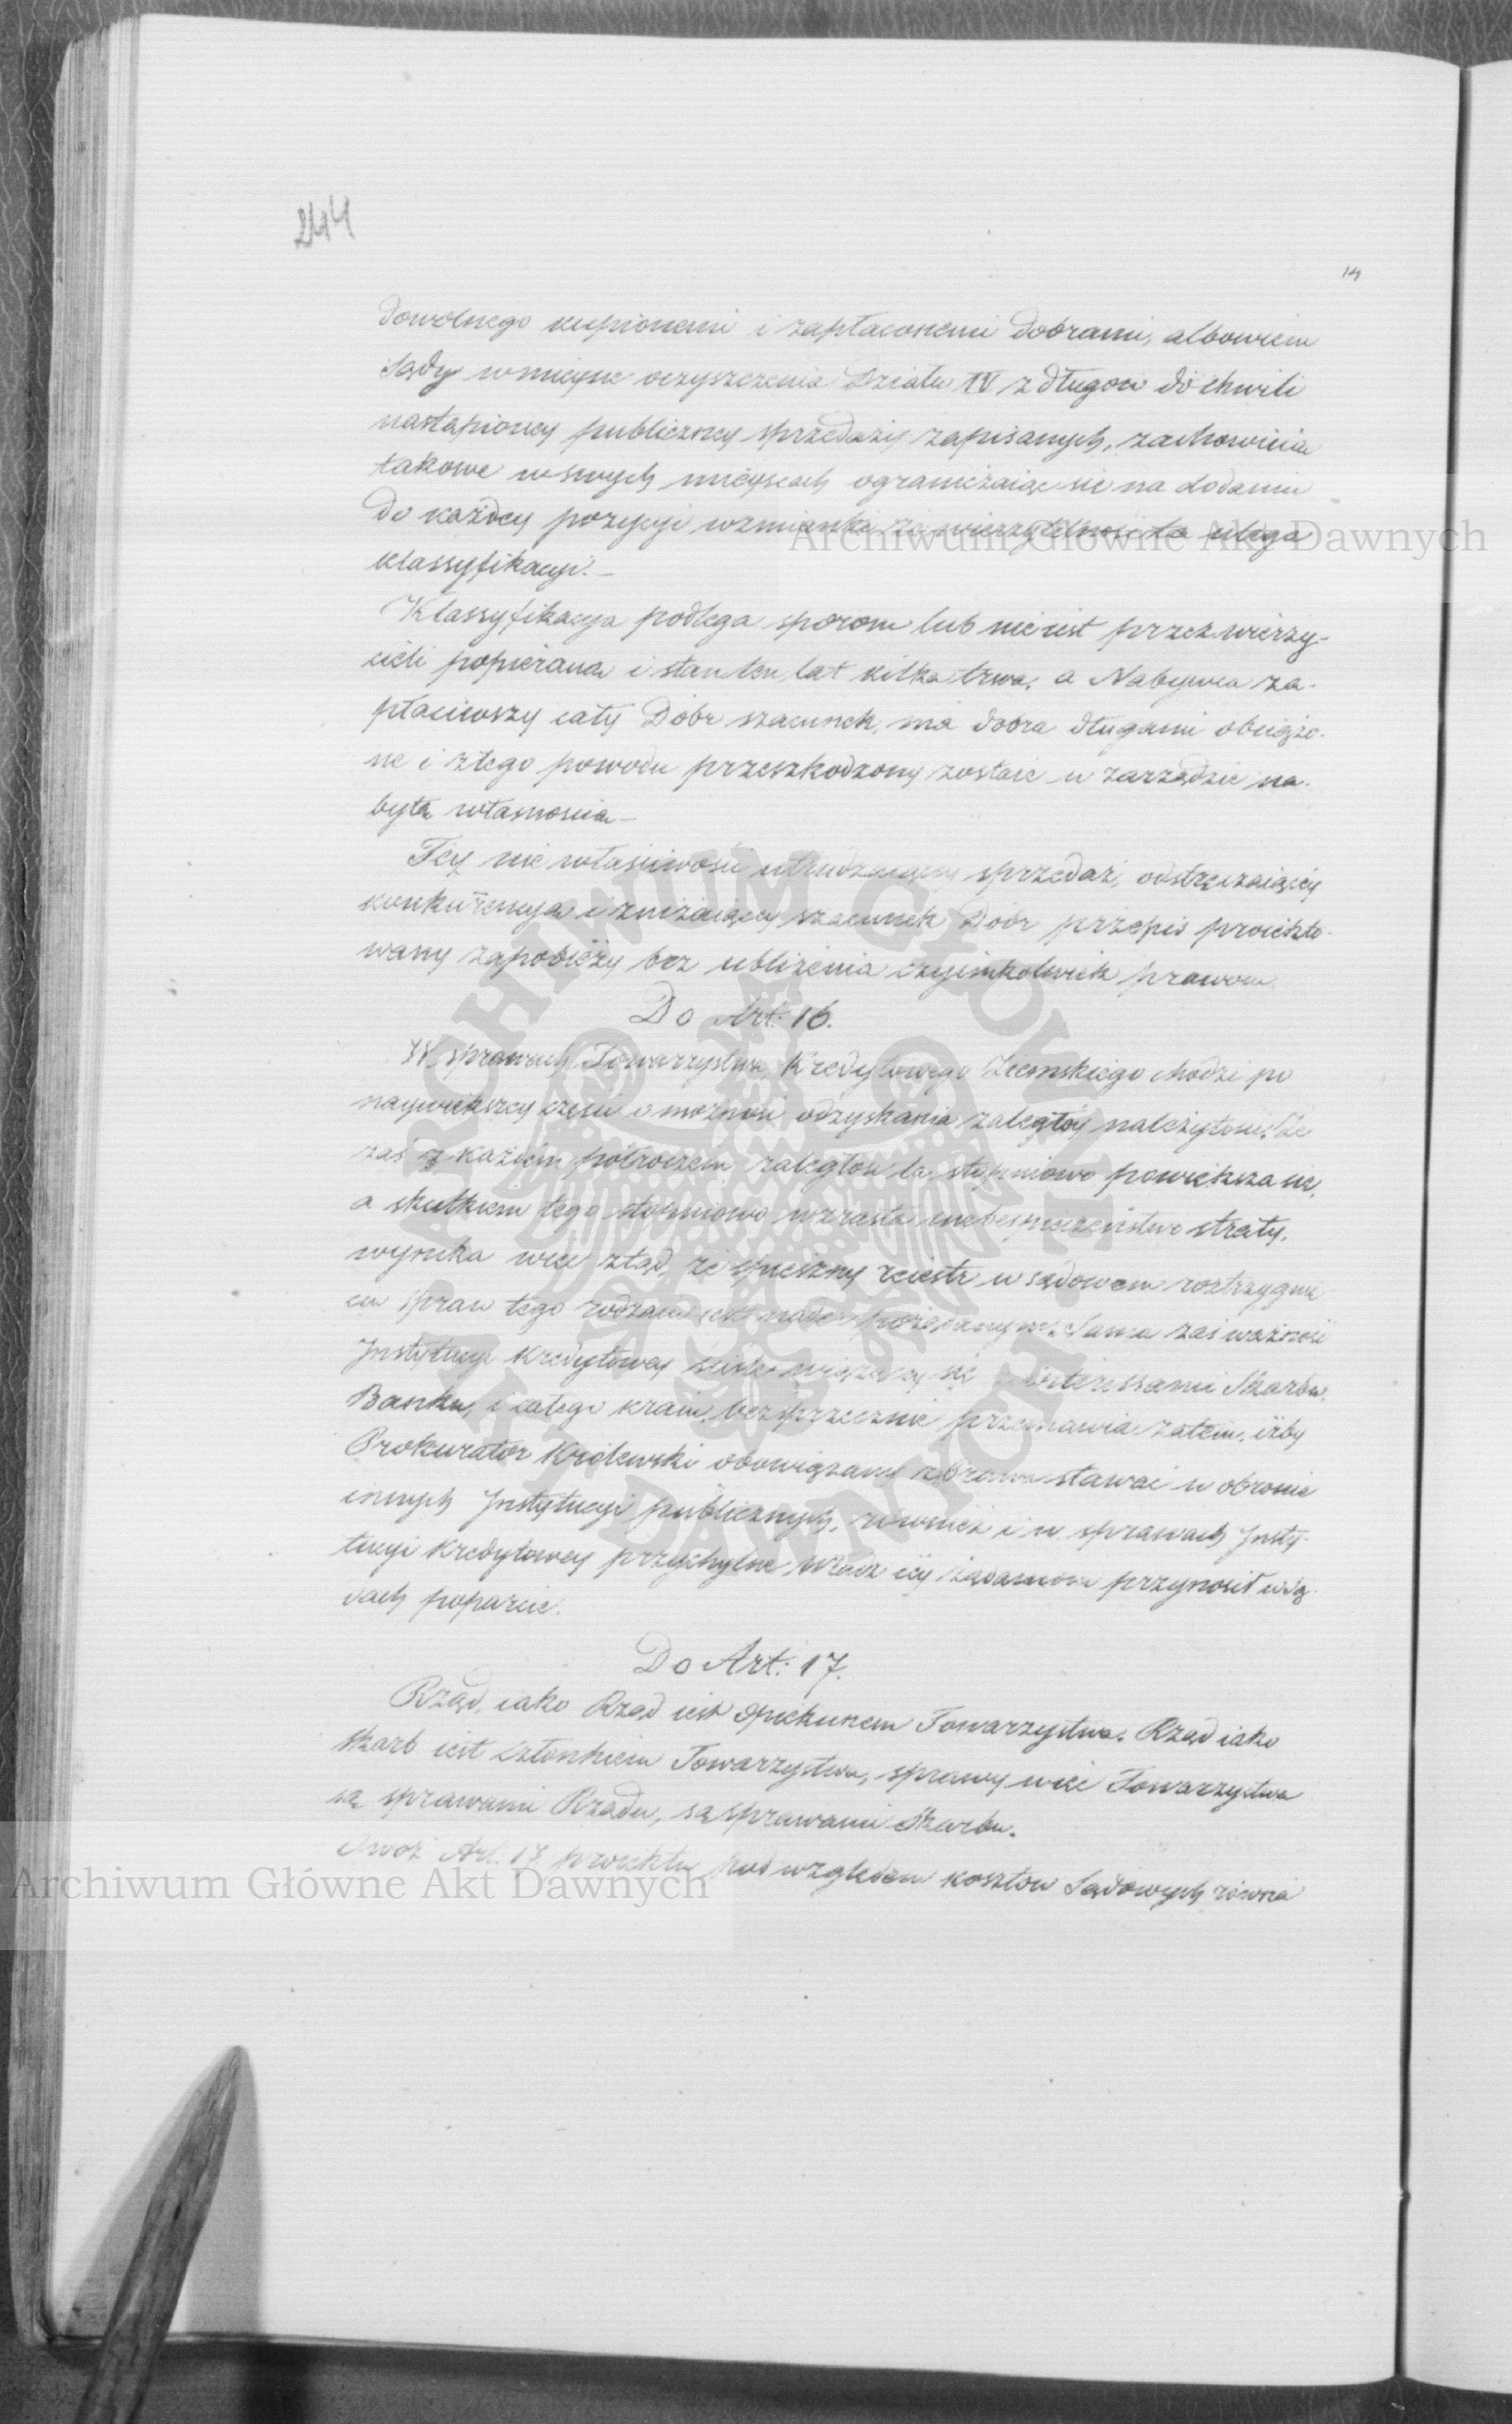 244
14
dowolnego kupionemi i zapłaconemi dobrami, albowiem
Sądy w mieysce oczyszczenia Działu IV z długow do chwili
nastąpioney publiczney sprzedaży zapisanych, zachowuią
takowe w swych mieyscach ograniczaiąc się na dodaniu
do każdey pozycyi wzmianki że wierzytelność ta ulega
klassyfikacyi.—
Klassyfikacya podlega sporom lub nie iest przez wierzy-
cieli popierana i stan ten lat kilka trwa, a Nabywca za-
płaciwszy cały Dobr szacunek, ma dobra długami obciążo-
ne i z tego powodu przeszkodzony zostaie w zarządzie na-
bytą własnością—
Tey nie właściwości utrudzaiącey sprzedaż, odstręczaiącey
konkurencyą i zniżaiącey szacunek Dobr przepis proiekto-
wany zapobieży bez ubliżenia czyimkolwiek prawom.
Do Art: 16.
W sprawach Towarzystwa Kredytowego Ziemskiego chodzi po
naywiększey części o możność odzyskania zaległey należytości. Że
zaś z każdem półroczem zaległość ta stopniowo powiększa się,
a skutkiem tego stopniowo wzrasta niebespieczeństwo straty,
wynika więc ztąd, że spieszny reiestr w sądowem roztrzygnie-
niu spraw tego rodzaiu iest nader pożądanym. Sama zaś ważność
Instytucyi Kredytowey ściśle wiążącey się z interessami Skarbu,
Banku, i całego kraiu, bezsprzecznie przemawia zatem, iżby
Prokurator Krolewski obowiązany z prawa stawać w obronie
innych Instytucyi publicznych, rownież i w sprawach Insty-
tucyi Kredytowey przychylne Władz iey żądaniom przynosił w Są-
dach poparcie.
Do Art: 17.
Rząd, iako Rząd iest opiekunem Towarzystwa. Rząd iako
skarb iest członkiem Towarzystwa, sprawy więc Towarzystwa
są sprawami Rządu, są sprawami Skarbu.
Owoż Art: 17 proiektu pod względem kosztow Sądowych rowna
Archiwum Główne Akt Dawnych
Archiwum Główne Akt Dawnych